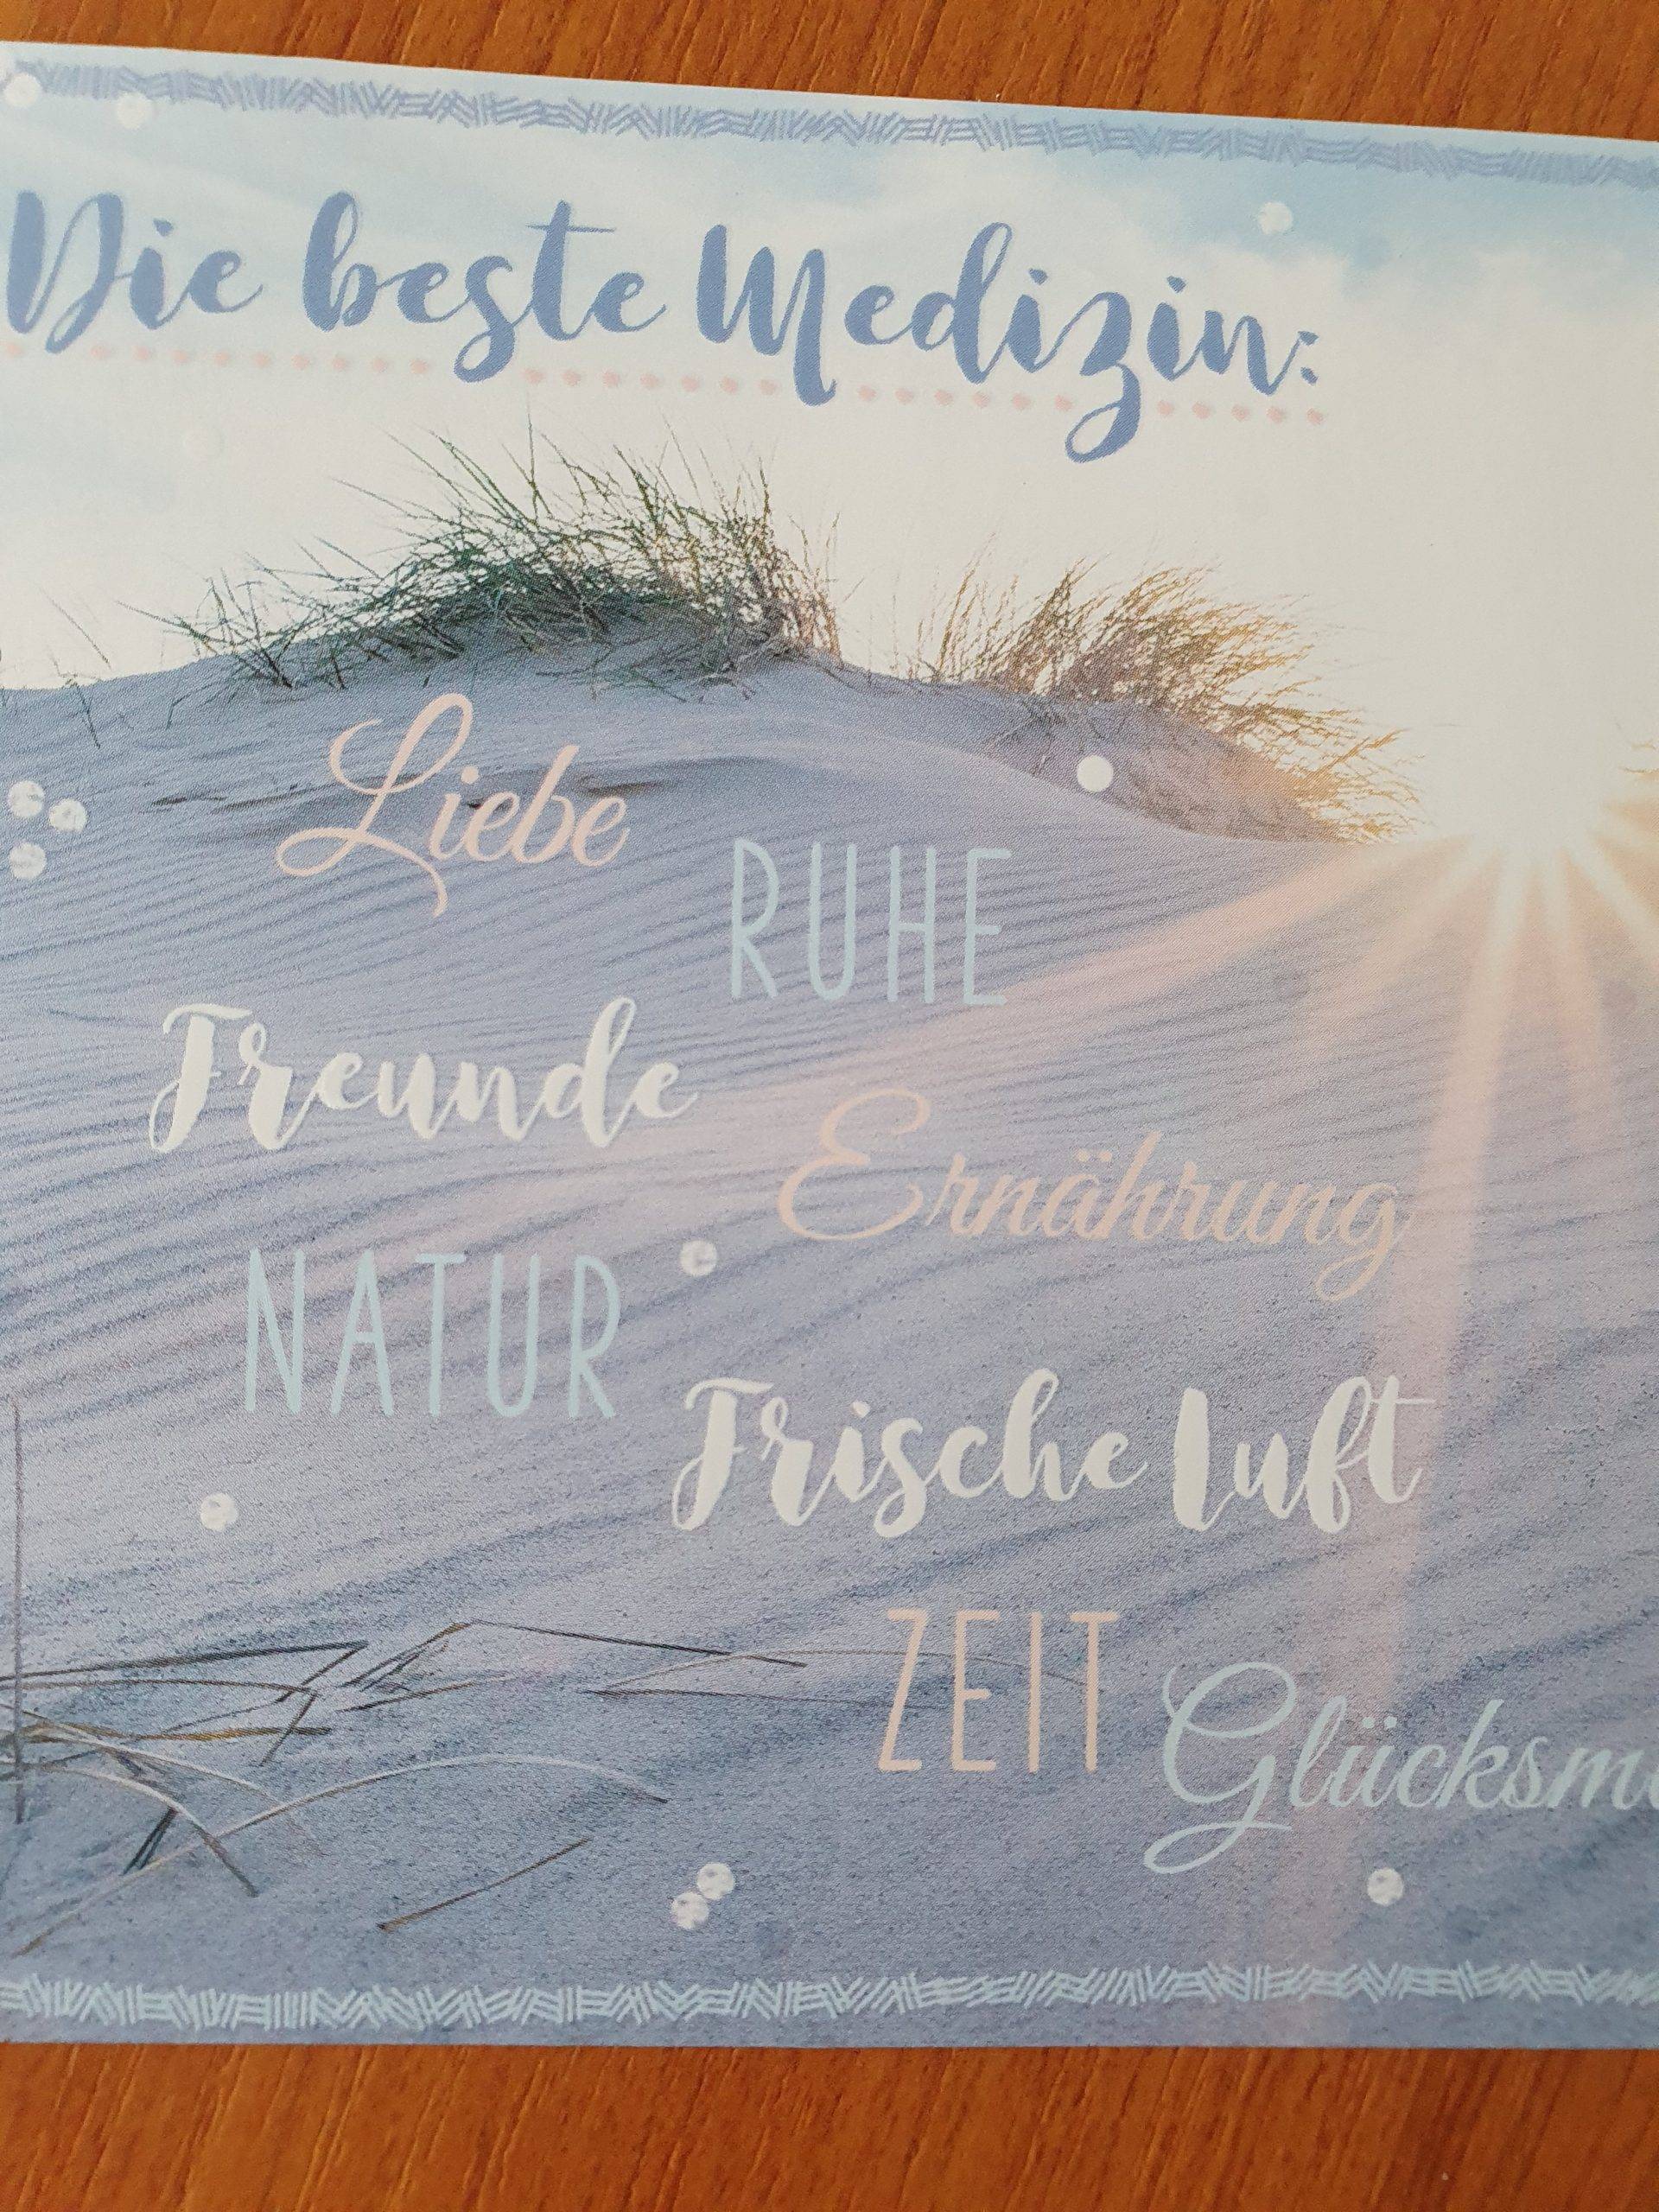 Die beste Medizin:
Liebe
RUHE
Freunde
Ernährung
NATUR
Frische Luft
ZEIT